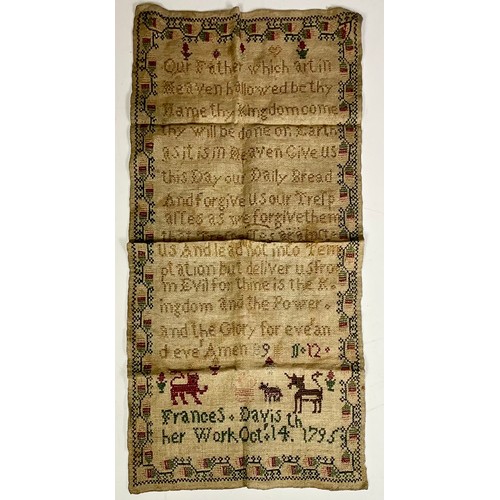 Our Father which art in
Heaven hallowed be thy
Name thy Kingdom come
thy will be done on Earth
as it is in Heaven Give us
this Day our Daily Bread
And forgive us our Tresp
asses as we forgive them
that Trespasses against
us And lead not into Tem
ptation but deliver us fro
m Evil for thine is the K
ingdom and the Power
and the Glory for ever an
d ever Amen 9 11 12
Frances Davis
her Work Octr 14th 1795